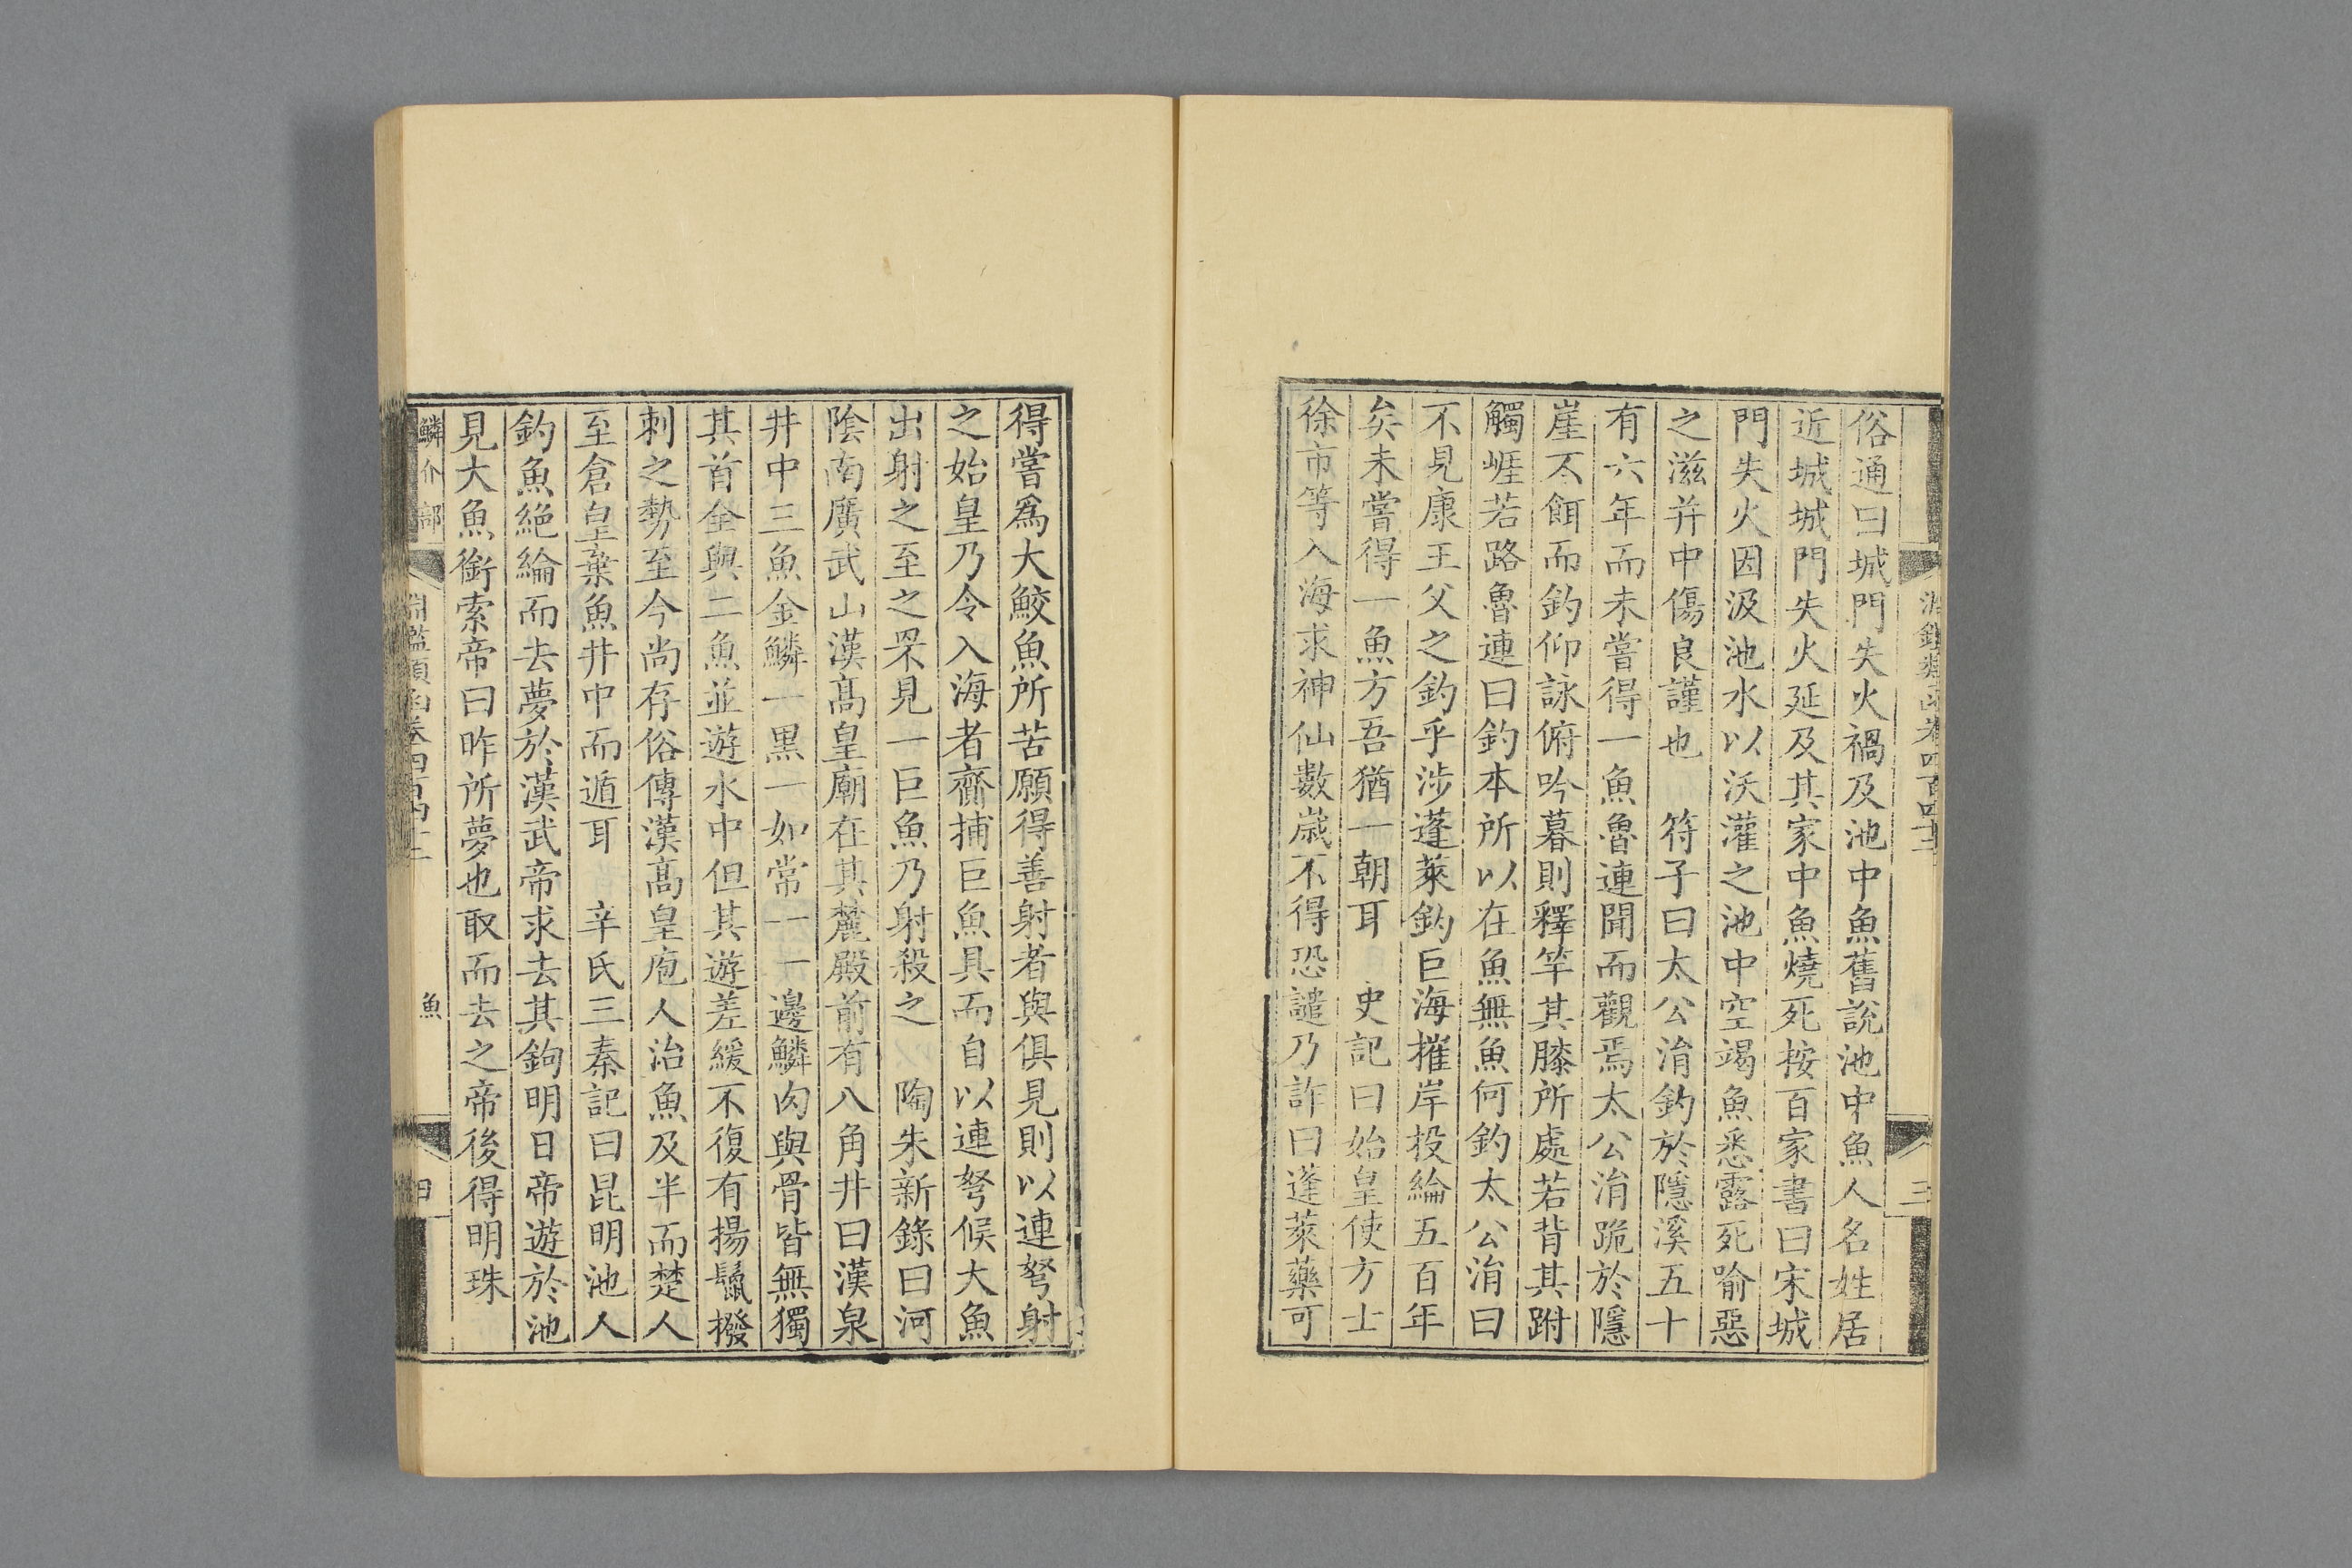 三
俗通曰城門失火禍及池中魚舊說池中魚人名姓居
近城城門失火延及其家中魚燒死按百家書曰宋城
門失火因汲池水以沃灌之池中空竭魚悉露死喻惡
之滋并中傷良謹也 符子曰太公涓釣於隱溪五十
有六年而未嘗得一魚魯連聞而觀焉太公涓跪於隱
崖不餌而釣仰詠俯吟暮則釋竿其膝所處若背其跗
觸崕若路魯連曰釣本所以在魚無魚何釣太公涓曰
不見康王父之釣乎涉蓬萊釣巨海摧岸投綸五百年
矣未嘗得一魚方吾猶一朝耳 史記曰始皇使方士
徐市等入海求神仙數歲不得恐譴乃詐曰蓬萊藥可
得嘗爲大鮫魚所苦願得善射者與俱見則以連弩射
之始皇乃令入海者齎捕巨魚具而自以連弩候大魚
出射之至之罘見一巨魚乃射殺之 陶朱新錄曰河
陰南廣武山漢髙皇廟在其麓殿前有八角井曰漢泉
井中三魚金鱗一黒一如常一一邊鱗肉與骨皆無獨
其首全與二魚並遊水中但其遊差緩不復有揚鬛撥
刺之勢至今尚存俗傳漢髙皇庖人治魚及半而楚人
至倉皇棄魚井中而遁耳 辛氏三秦記曰昆明池人
釣魚絶綸而去夢於漢武帝求去其鉤明日帝遊於池
見大魚銜索帝曰昨所夢也取而去之帝後得明珠
鱗介部 淵鑑類函卷四百四十二 魚 四